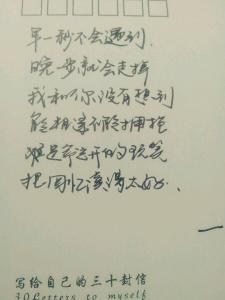 早一秒不会遇到.
晚一步就会走掉
我和你没有想到
能相逢不能拥抱
难道命运开的玩笑
把回忆演得太好.
写给自己的三十封信
30 Letters to myself